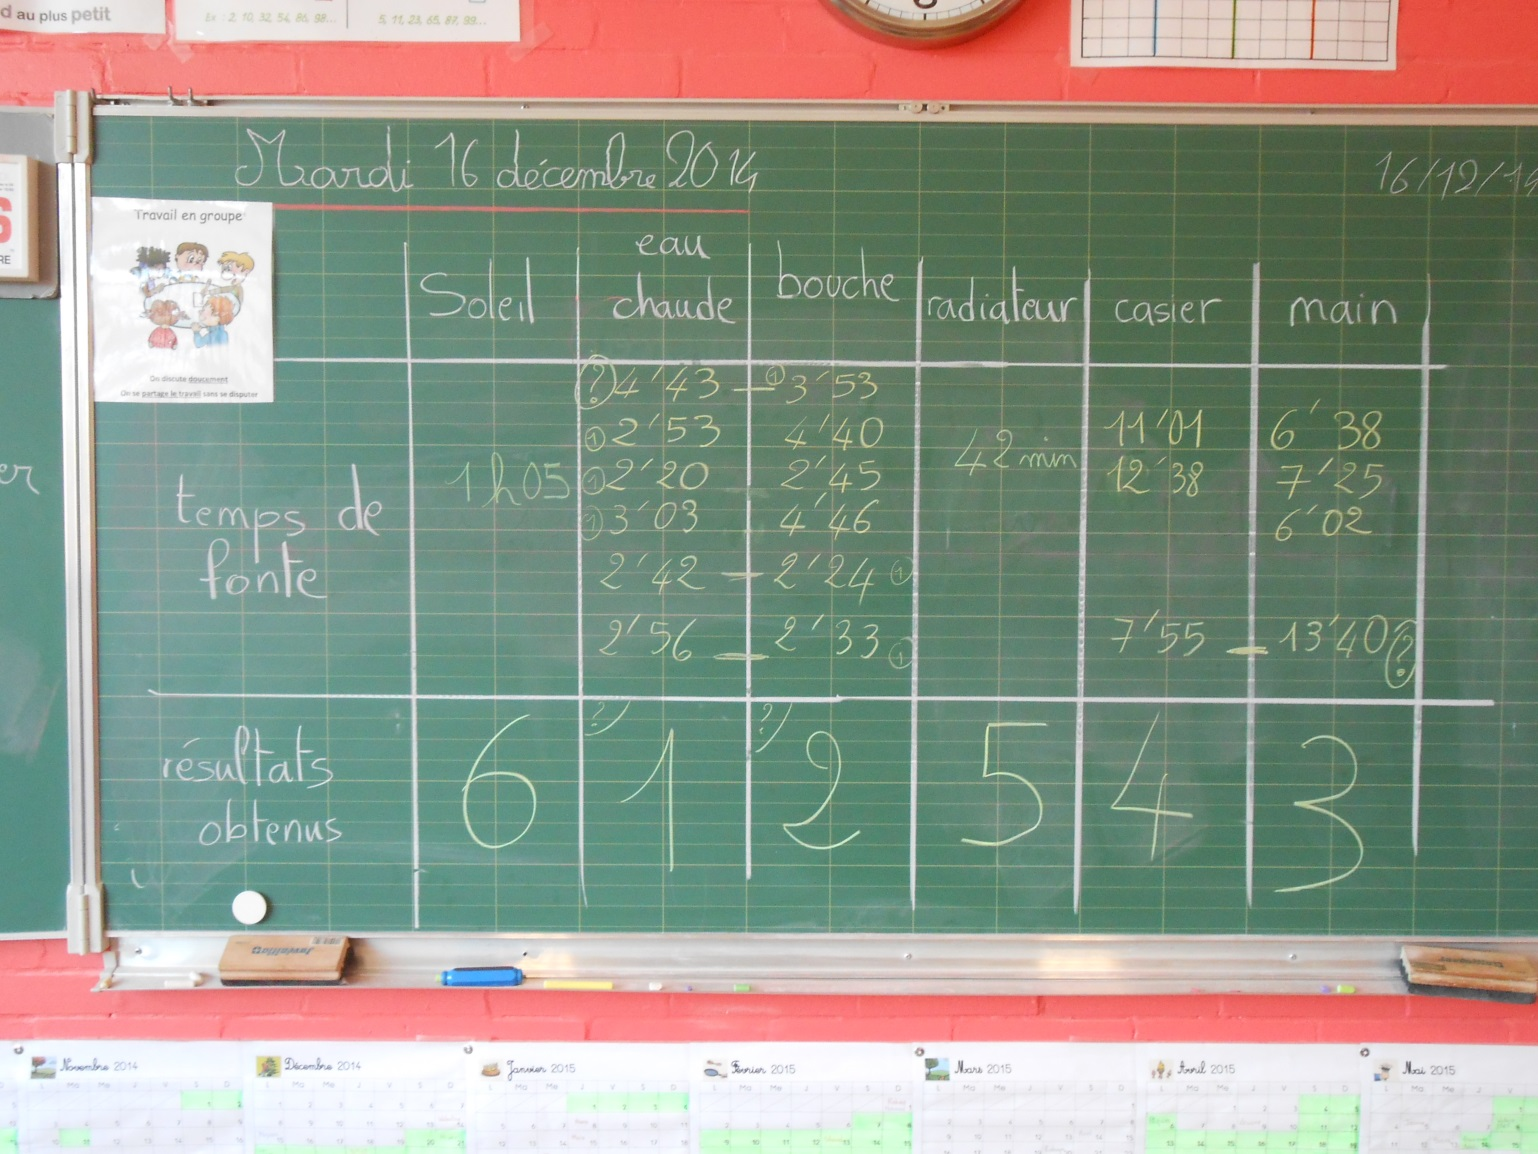 d au plus petit
Ex : 2, 10, 32, 54, 86, 98...
5, 11, 23, 65, 87, 99...
Mardi 16 décembre 2014
16/12/14
Travail en groupe
On discute doucement
On se partage le travail sans se disputer
Soleil
eau
chaude
bouche
radiateur
casier
main
er
temps de
fonte
1h05
? 4'43 – 1 3'53
1 2'53 4'40
1 2'20 2'45
1 3'03 4'46
2'42 – 2'24 1
2'56 – 2'33 1
42 min
11'01 6'38
12'38 7'25
6'02
7'55 – 13'40 ?
résultats
obtenus
6 ? 1 ? 2 5 4 3
Novembre 2014
Décembre 2014
Janvier 2015
Février 2015
Mars 2015
Avril 2015
Mai 2015